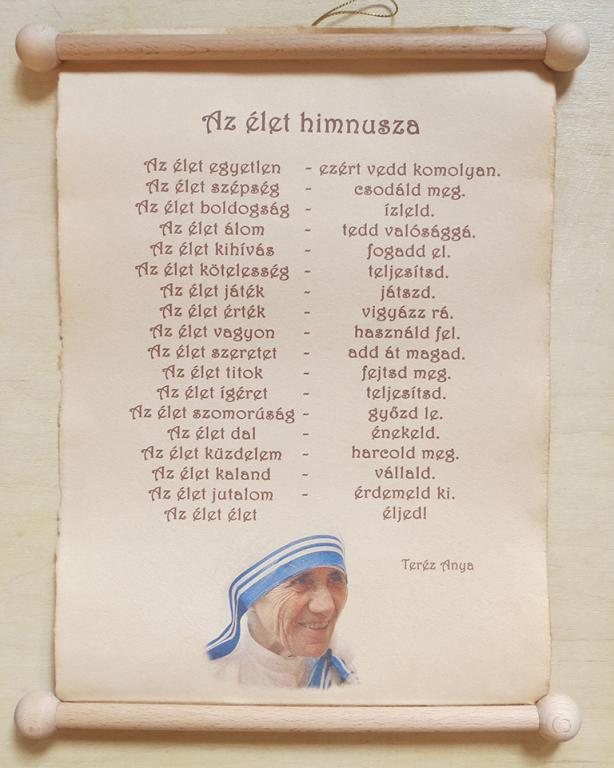 Az élet himnusza
Az élet egyetlen - ezért vedd komolyan.
Az élet szépség - csodáld meg.
Az élet boldogság - ízleld.
Az élet álom - tedd valósággá.
Az élet kihívás - fogadd el.
Az élet kötelesség - teljesítsd.
Az élet játék - játszd.
Az élet érték - vigyázz rá.
Az élet vagyon - használd fel.
Az élet szeretet - add át magad.
Az élet titok - fejtsd meg.
Az élet ígéret - teljesítsd.
Az élet szomorúság - győzd le.
Az élet dal - énekeld.
Az élet küzdelem - harcold meg.
Az élet kaland - vállald.
Az élet jutalom - érdemeld ki.
Az élet élet éljed!
Teréz Anya